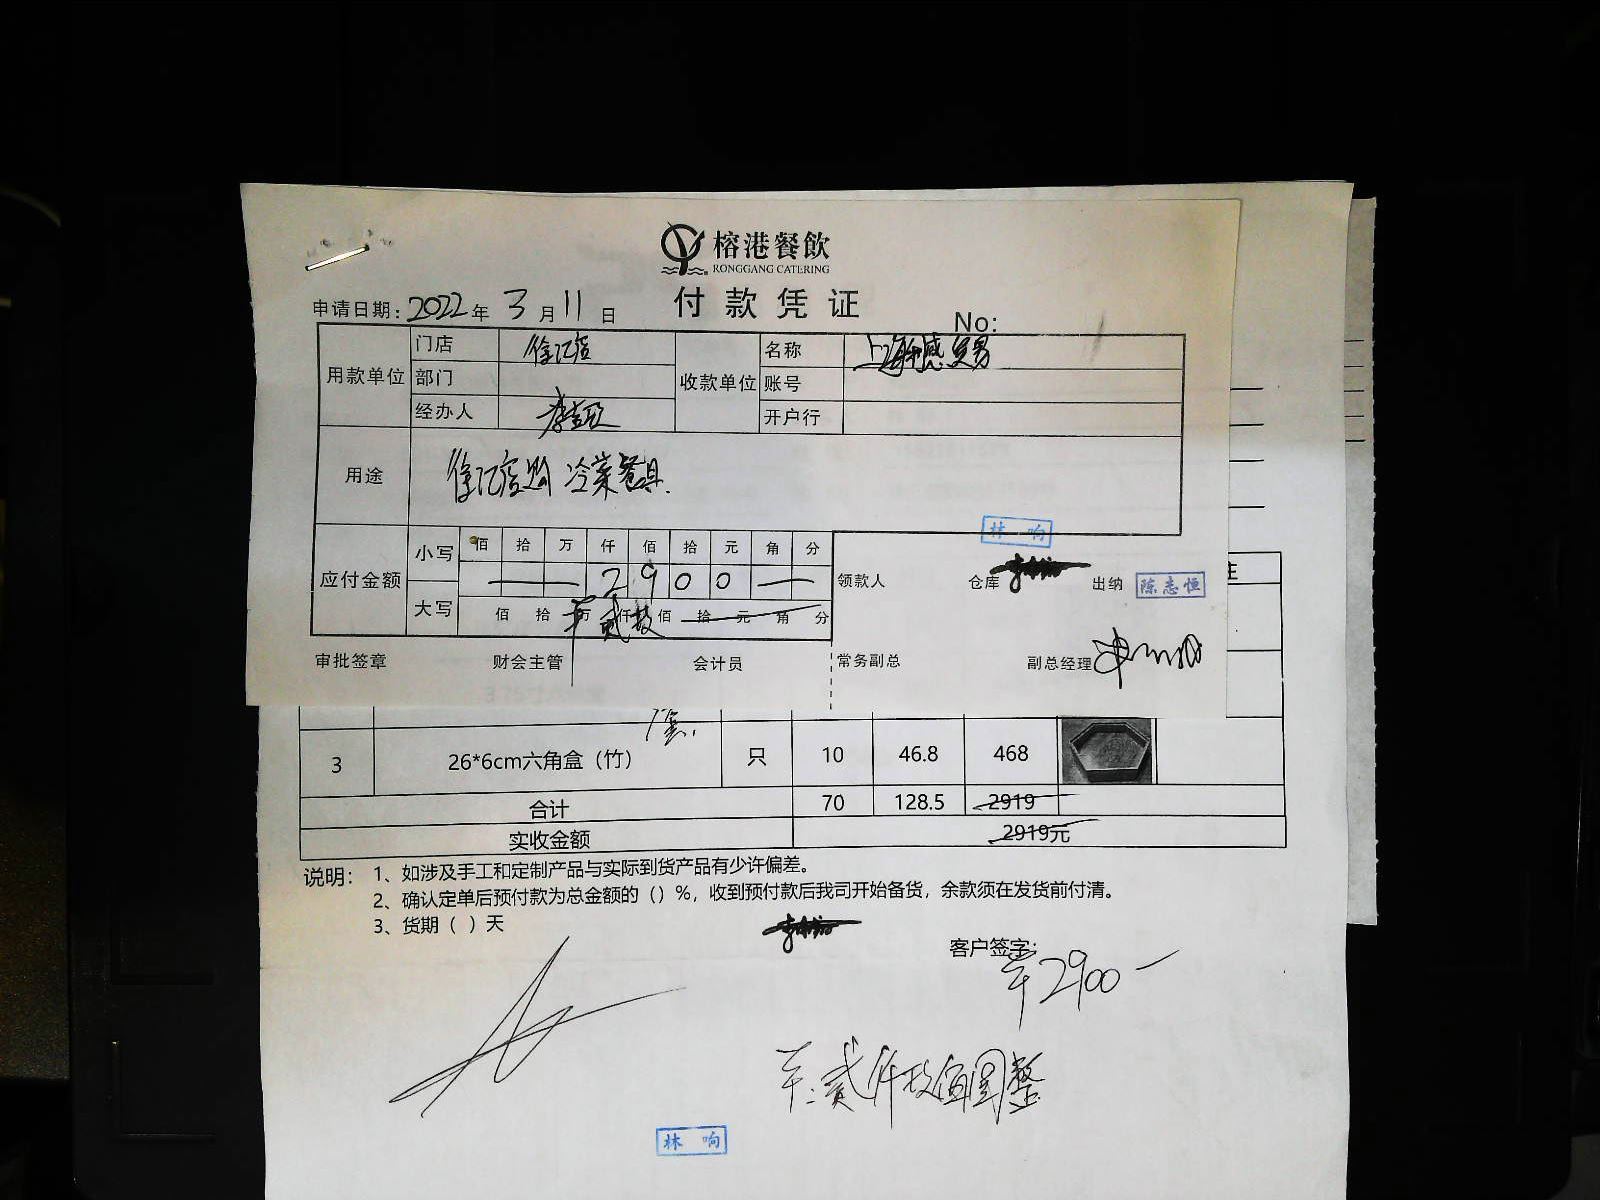 榕港餐飲
RONGGANG CATERING
付款凭证
申请日期: 2022 年 3 月 11 日
No:
用款单位 门店 徐汇店 收款单位 名称 上海
部门 账号
经办人 开户行
用途 徐汇店 冷菜餐具.
林 响
应付金额 小写 佰 拾 万 仟 佰 拾 元 角 分
2 9 0 0
领款人 仓库 出纳 陈志恒
大写 佰 拾 万 仟 佰 拾 元 角 分
贰 玖
审批签章 财会主管 会计员 常务副总 副总经理
3 26*6cm六角盒（竹） 只 10 46.8 468
合计 70 128.5 2919
实收金额 2919元
说明： 1、如涉及手工和定制产品与实际到货产品有少许偏差。
2、确认定单后预付款为总金额的（）%，收到预付款后我司开始备货，余款须在发货前付清。
3、货期（ ）天
客户签字：
¥2900
贰仟玖佰圆整
林 响